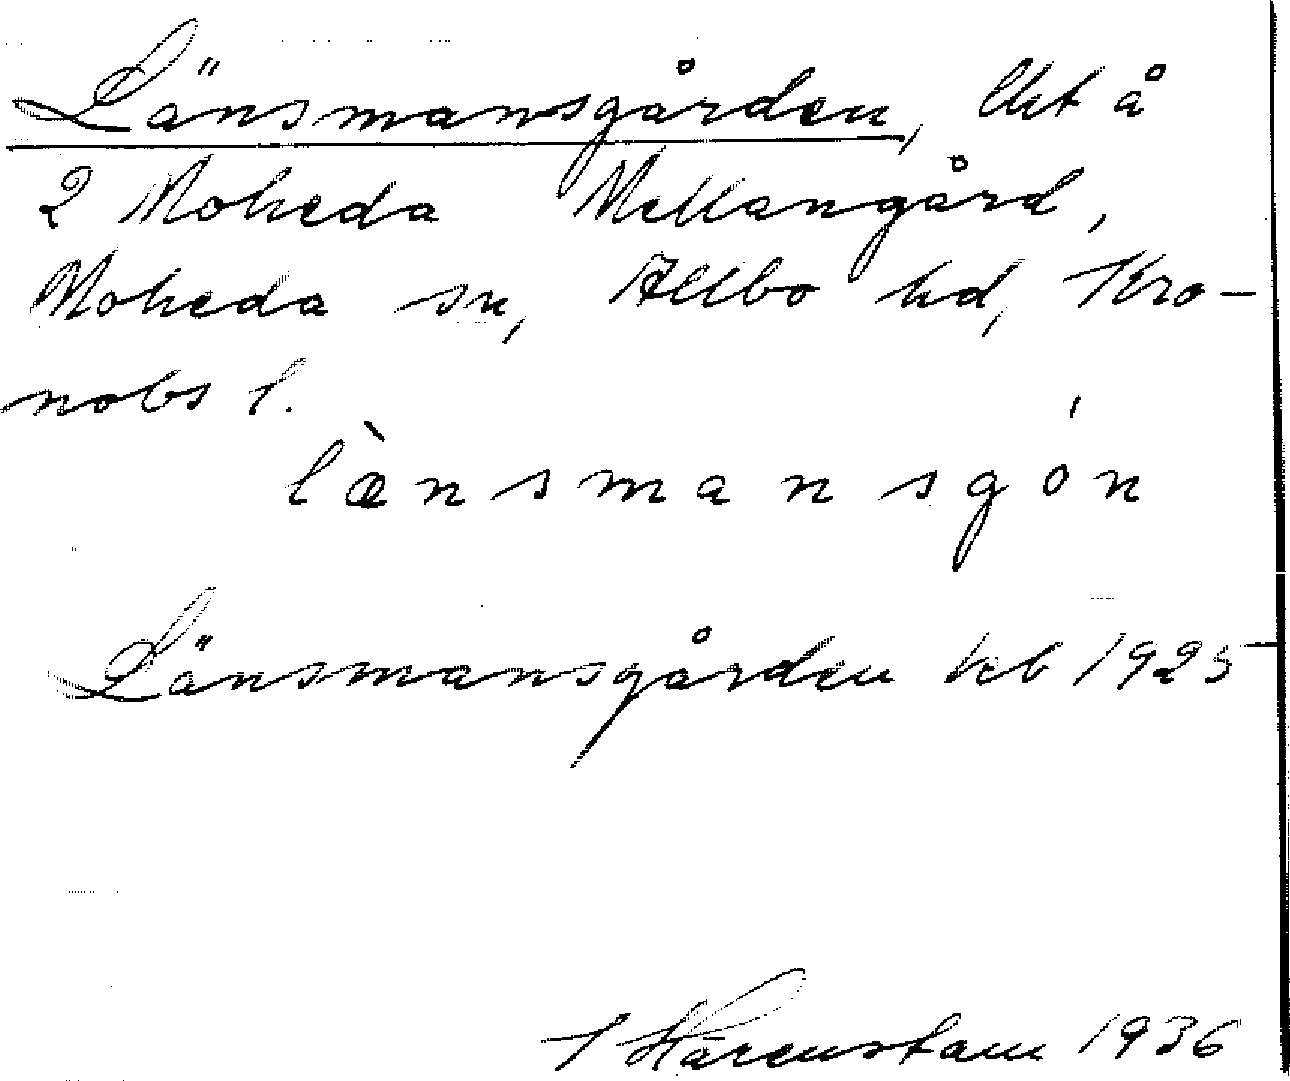 Länsmansgården, lht å
2 Moheda Mellangård,
Moheda sn, Allbo hd, Kro-
nobs l.
læ̀nsmansgón
Länsmansgården kb 1925
Härenstam 1936